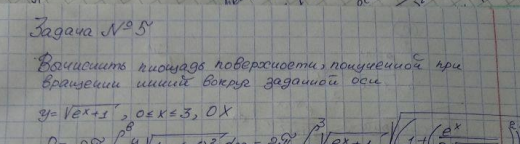 Задача №5
Вычислить площадь поверхности, полученной при
вращении линий вокруг заданной оси
y=√(eˣ+1), 0≤x≤3, OX